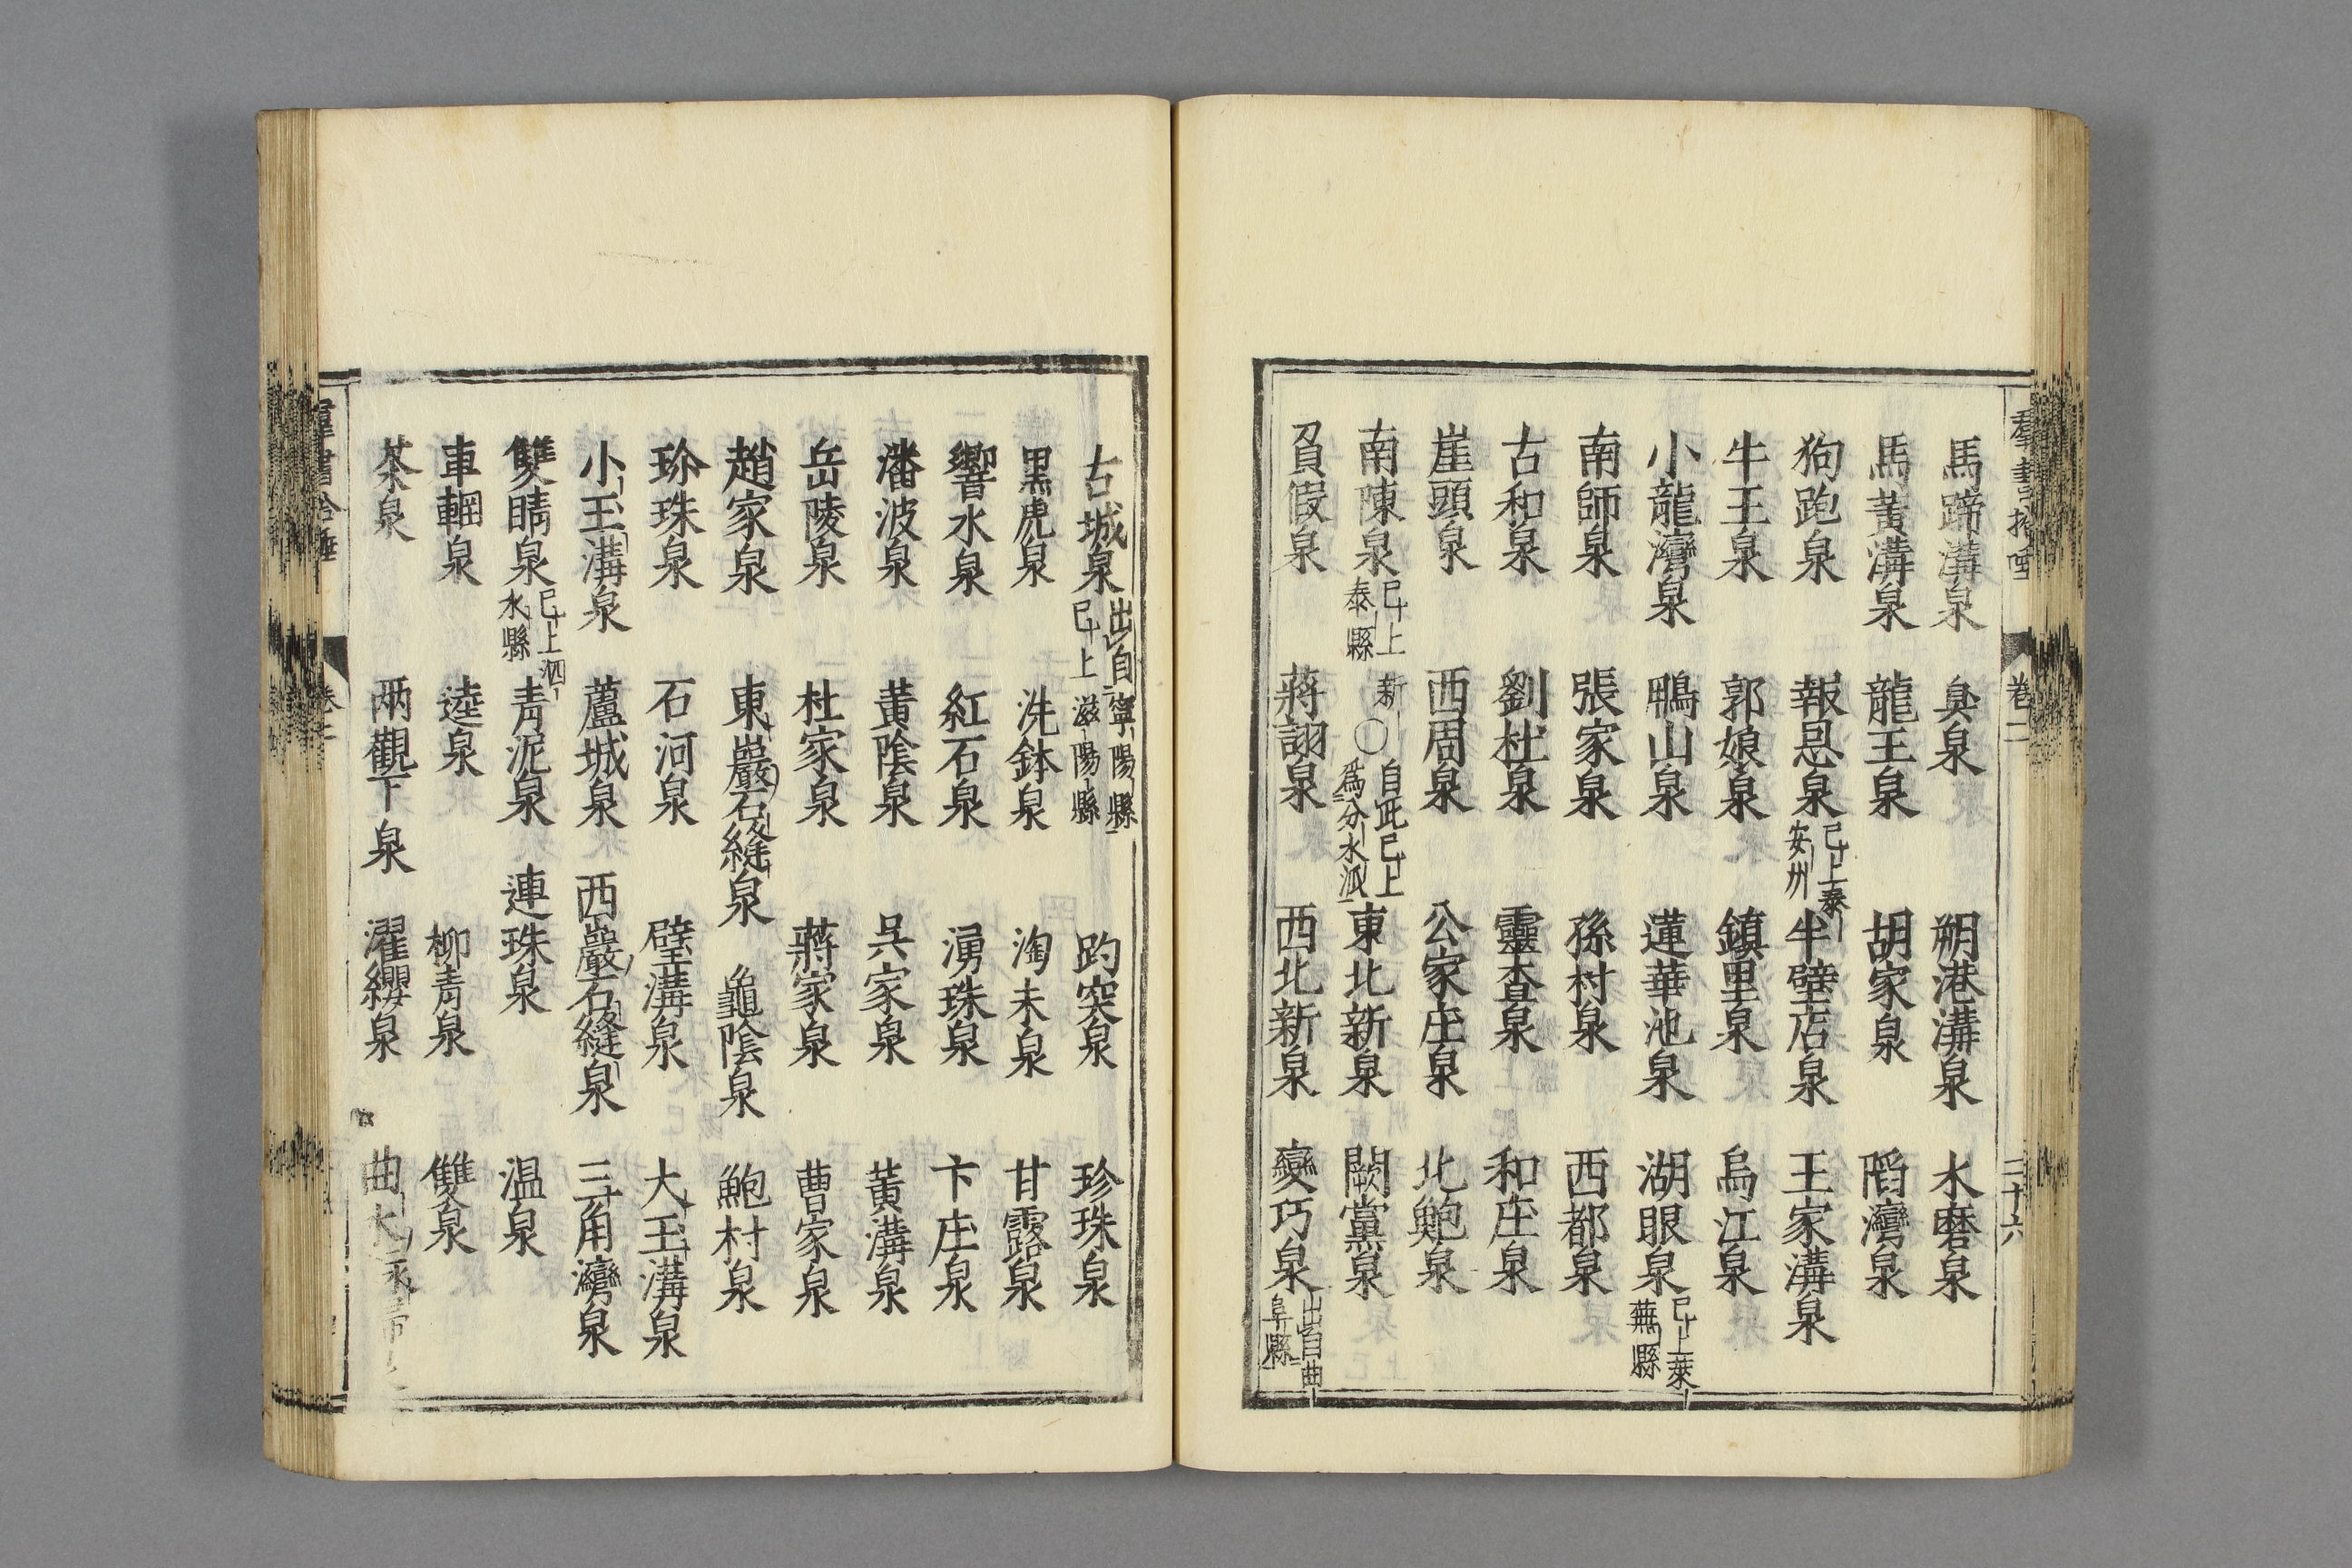 馬蹄溝泉 臭泉 朔港溝泉 水磨泉
馬黃溝泉 龍王泉 胡家泉 滔灣泉
狗跑泉 報恩泉 已上泰安州 半壁店泉 王家溝泉
牛王泉 郭娘泉 鎮里泉 烏江泉
小龍灣泉 鴨山泉 蓮華池泉 湖眼泉 已上萊蕪縣
南師泉 張家泉 孫村泉 西都泉
古和泉 劉杜泉 靈査泉 和庄泉
崖頭泉 西周泉 公家庄泉 北鮑泉
南陳泉 已上新泰縣 〇 自此已上爲分水派 東北新泉 闕黨泉
負假泉 蔣詡泉 西北新泉 變巧泉 出自曲阜縣
卷二
二十六
古城泉 出自寧陽縣已上滋陽縣 趵突泉 珍珠泉
黑虎泉 洗鉢泉 淘未泉 甘露泉
響水泉 紅石泉 湧珠泉 卞庄泉
潘波泉 黃陰泉 吳家泉 黃溝泉
岳陵泉 杜家泉 蔣家泉 曹家泉
趙家泉 東巖石縫泉 龜陰泉 鮑村泉
珍珠泉 石河泉 壁溝泉 大玉溝泉
小玉溝泉 蘆城泉 西巖石縫泉 三角灣泉
雙睛泉 已上泗水縣 靑泥泉 連珠泉 温泉
車輞泉 逵泉 柳靑泉 雙泉
茶泉 兩觀下泉 濯纓泉 曲水